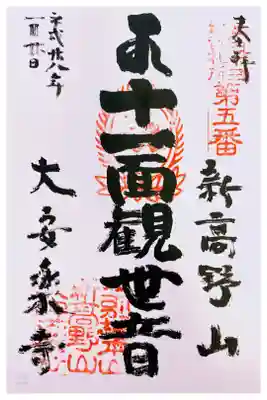 奉拝
第五番
新高野山
十一面観世音
大安楽寺
平成廿八年
一月廿日
新高野山